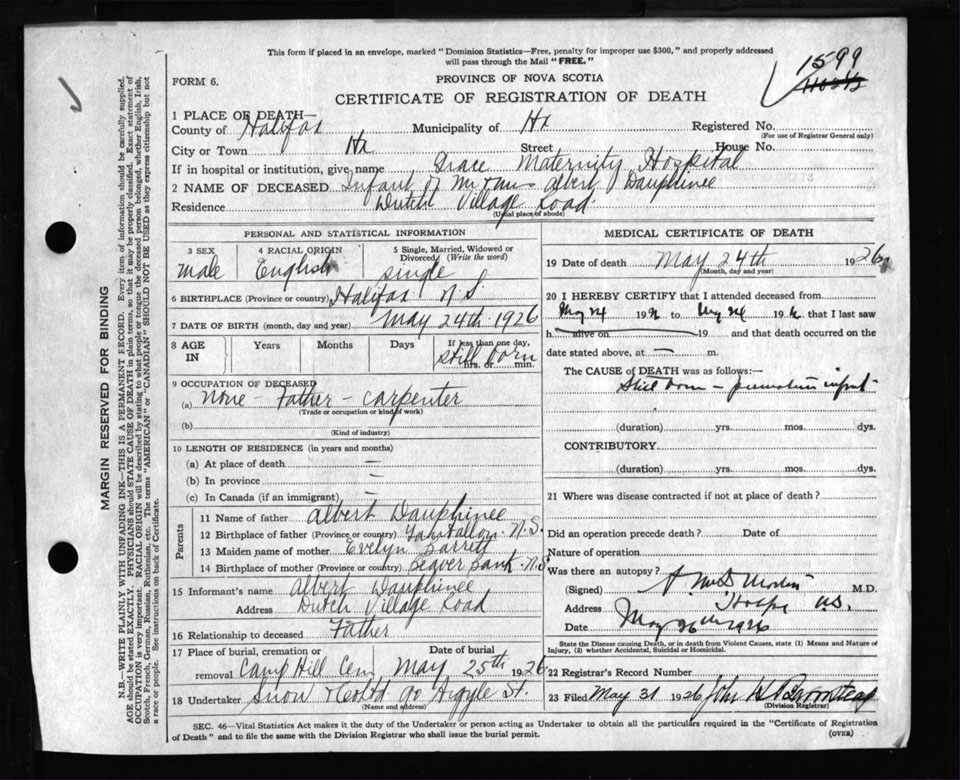 This form if placed in an envelope, marked "Dominion Statistics—Free, penalty for improper use $300," and properly addressed
will pass through the Mail "FREE."
1599
FORM 6.
PROVINCE OF NOVA SCOTIA
CERTIFICATE OF REGISTRATION OF DEATH
1 PLACE OF DEATH—
County of Halifax Municipality of Hx Registered No.
(For use of Registrar General only)
City or Town Hx Street House No.
If in hospital or institution, give name Grace Maternity Hospital
2 NAME OF DECEASED Infant of Mr & Mrs Albert Dauphinee
Residence Dutch Village Road
(Usual place of abode)
PERSONAL AND STATISTICAL INFORMATION
3 SEX 4 RACIAL ORIGIN 5 Single, Married, Widowed or
Divorced (Write the word)
male English single
6 BIRTHPLACE (Province or country) Halifax N.S.
7 DATE OF BIRTH (month, day and year) May 24th 1926
8 AGE IN Years Months Days If less than one day,
still born
hrs. or min.
9 OCCUPATION OF DECEASED
(a) none - Father - carpenter
(Trade or occupation or kind of work)
(b)
(Kind of industry)
10 LENGTH OF RESIDENCE (in years and months)
(a) At place of death —
(b) In province —
(c) In Canada (if an immigrant) —
Parents
11 Name of father Albert Dauphinee
12 Birthplace of father (Province or country) N.S.
13 Maiden name of mother Evelyn Barrett
14 Birthplace of mother (Province or country) Beaver Bank N.S.
15 Informant's name Albert Dauphinee
Address Dutch Village Road
16 Relationship to deceased Father
17 Place of burial, cremation or Date of burial
removal Camp Hill Cem May 25th 1926
18 Undertaker Snow & Co Ltd 90 Argyle St.
(Name and address)
MEDICAL CERTIFICATE OF DEATH
19 Date of death May 24th 1926
(Month, day and year)
20 I HEREBY CERTIFY that I attended deceased from
May 24 192 to May 24 192 that I last saw
h alive on 19 and that death occurred on the
date stated above, at — m.
The CAUSE of DEATH was as follows:
Still born - premature infant
(duration) yrs. mos. dys.
CONTRIBUTORY
(duration) yrs. mos. dys.
21 Where was disease contracted if not at place of death?
Did an operation precede death? Date of
Nature of operation
Was there an autopsy?
(Signed) M.D.
Address N.S.
Date May 26th 1926
State the Disease causing Death, or in death from Violent Causes, state (1) Means and Nature of
Injury, (2) whether Accidental, Suicidal or Homicidal.
22 Registrar's Record Number
23 Filed May 31 1926 John
(Division Registrar)
SEC. 46—Vital Statistics Act makes it the duty of the Undertaker or person acting as Undertaker to obtain all the particulars required in the "Certificate of Registration
of Death" and to file the same with the Division Registrar who shall issue the burial permit.
(OVER)
MARGIN RESERVED FOR BINDING
N.B.—WRITE PLAINLY WITH UNFADING INK—THIS IS A PERMANENT RECORD. Every item of information should be carefully supplied.
AGE should be stated EXACTLY. PHYSICIANS should STATE CAUSE OF DEATH in plain terms, so that it may be properly classified. Exact statement of
OCCUPATION is very important. RACIAL ORIGIN will be described by stating to what people or tongue the deceased person belonged, whether English, Irish,
Scotch, French, German, Russian, Ruthenian, etc. The terms "AMERICAN" or "CANADIAN" SHOULD NOT BE USED as they express citizenship but not
a race or people. See instructions on back of Certificate.